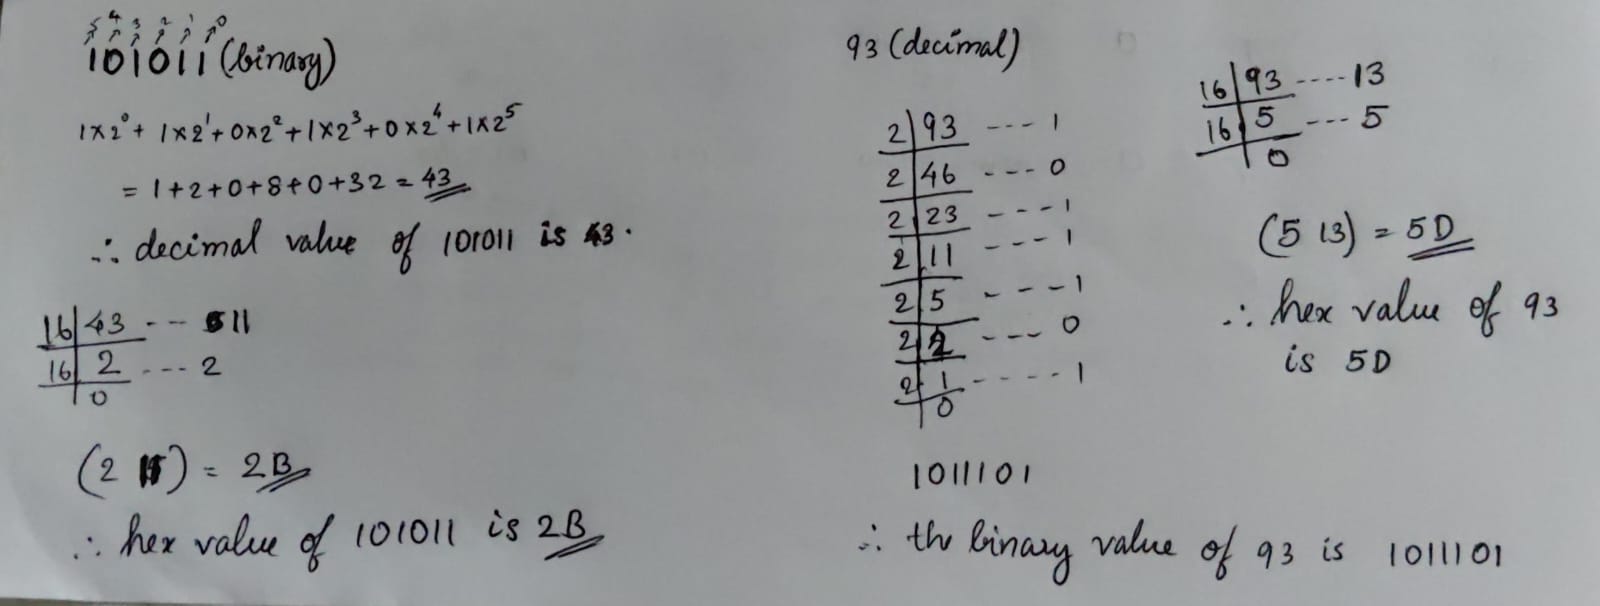 5 4 3 2 1 0
101011 (binary)
1×2⁰+ 1×2¹+0×2²+1×2³+0×2⁴+1×2⁵
= 1+2+0+8+0+32 = 43
∴ decimal value of 101011 is 43.
16 43 -- 11
16 2 --- 2
0
(2 11) = 2B
∴ hex value of 101011 is 2B
93 (decimal)
2 93 --- 1
2 46 --- 0
2 23 --- 1
2 11 --- 1
2 5 --- 1
2 2 --- 0
2 1 ---- 1
0
1011101
∴ the binary value of 93 is 1011101
16 93 ---- 13
16 5 --- 5
0
(5 13) = 5D
∴ hex value of 93
is 5D